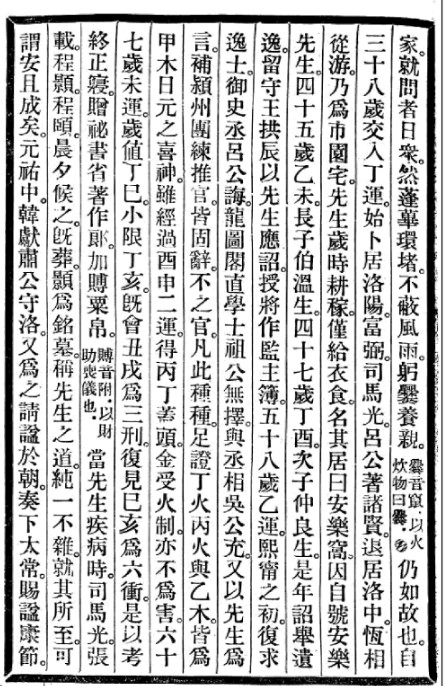 家就問者日衆。然蓬蓽環堵。不蔽風雨。躬爨養親。爨音竄．以火炊物曰爨．仍如故也。自
三十八歲交入丁運。始卜居洛陽。富弼。司馬光。呂公著諸賢。退居洛中。恆相
從游。乃爲市園宅。先生歲時耕稼。僅給衣食。名其居曰安樂窩。因自號安樂
先生。四十五歲乙未。長子伯溫生。四十七歲丁酉。次子仲良生。是年詔舉遺
逸。留守王拱辰以先生應詔。授將作監主簿。五十八歲乙運。熙甯之初。復求
逸士。御史丞呂公誨。龍圖閣直學士祖公無擇。與丞相吳公充。又以先生爲
言。補潁州團練推官。皆固辭。不之官。凡此種種。足證丁火丙火與乙木。皆爲
甲木日元之喜神。雖經過酉申二運。得丙丁蓋頭。金受火制。亦不爲害。六十
七歲未運。歲值丁巳。小限丁亥。旣會丑戌爲三刑。復見巳亥爲六衝。是以考
終正寢。贈祕書省著作郞。加賻粟帛。賻音附．以財助喪儀也．當先生疾病時。司馬光張
載程顥程頤。晨夕候之。旣葬。顥爲銘墓。稱先生之道。純一不雜。就其所至。可
謂安且成矣。元祐中。韓獻肅公守洛。又爲之請諡於朝。奏下太常。賜諡康節。